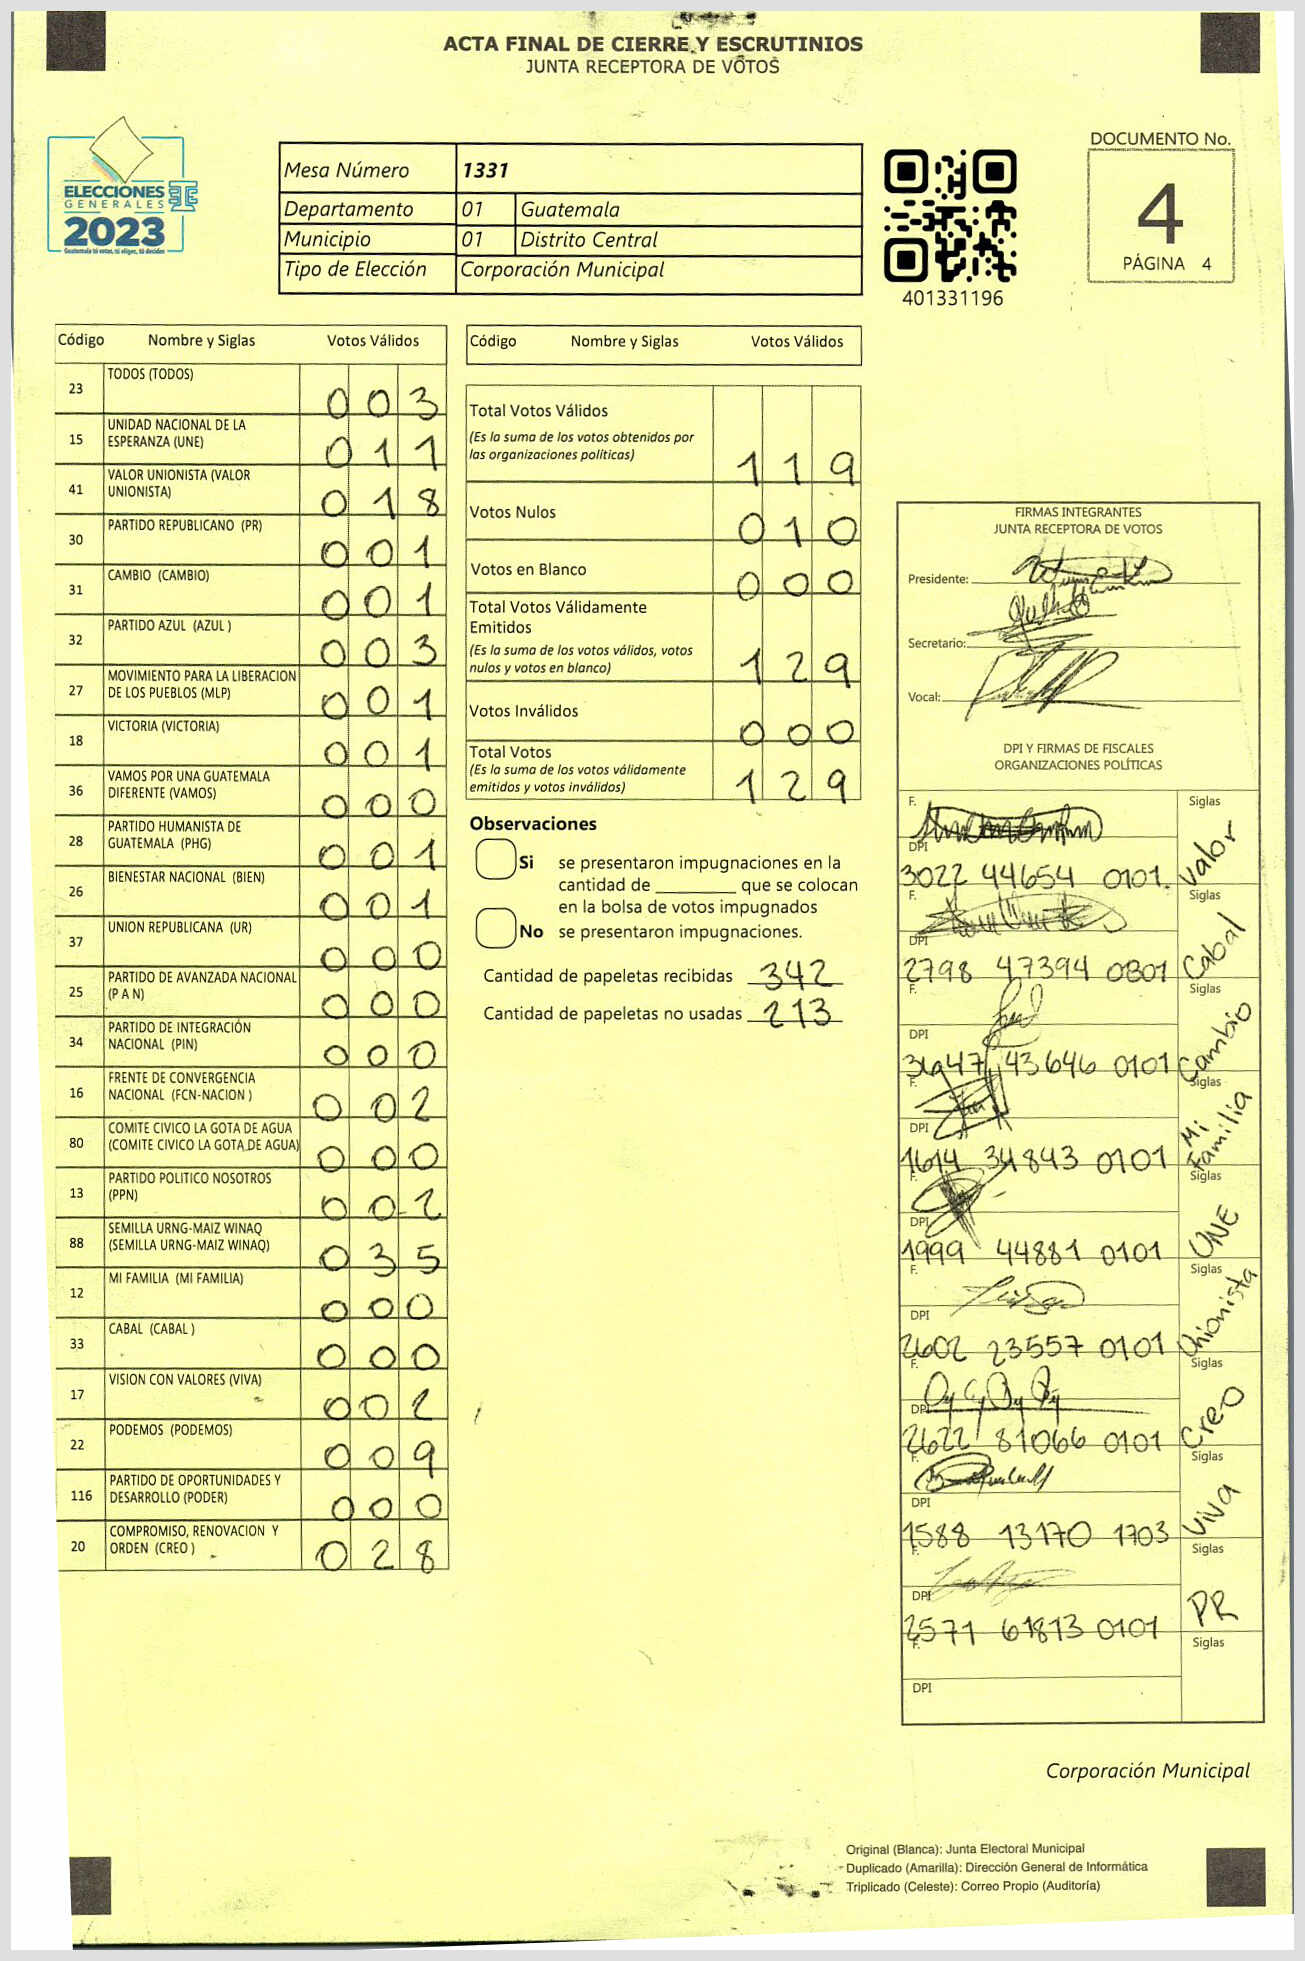 ACTA FINAL DE CIERRE Y ESCRUTINIOS
JUNTA RECEPTORA DE VOTOS
ELECCIONES
GENERALES
2023
Guatemala tú votas, tú eliges, tú decides
Mesa Número 1331
Departamento 01 Guatemala
Municipio 01 Distrito Central
Tipo de Elección Corporación Municipal
401331196
DOCUMENTO No.
4
PÁGINA 4
Código Nombre y Siglas Votos Válidos
23 TODOS (TODOS) 0 0 3
15 UNIDAD NACIONAL DE LA
ESPERANZA (UNE) 0 1 1
41 VALOR UNIONISTA (VALOR
UNIONISTA) 0 1 8
30 PARTIDO REPUBLICANO (PR) 0 0 1
31 CAMBIO (CAMBIO) 0 0 1
32 PARTIDO AZUL (AZUL ) 0 0 3
27 MOVIMIENTO PARA LA LIBERACION
DE LOS PUEBLOS (MLP) 0 0 1
18 VICTORIA (VICTORIA) 0 0 1
36 VAMOS POR UNA GUATEMALA
DIFERENTE (VAMOS) 0 0 0
28 PARTIDO HUMANISTA DE
GUATEMALA (PHG) 0 0 1
26 BIENESTAR NACIONAL (BIEN) 0 0 1
37 UNION REPUBLICANA (UR) 0 0 0
25 PARTIDO DE AVANZADA NACIONAL
(P A N) 0 0 0
34 PARTIDO DE INTEGRACIÓN
NACIONAL (PIN) 0 0 0
16 FRENTE DE CONVERGENCIA
NACIONAL (FCN-NACION ) 0 0 2
80 COMITE CIVICO LA GOTA DE AGUA
(COMITE CIVICO LA GOTA DE AGUA) 0 0 0
13 PARTIDO POLITICO NOSOTROS
(PPN) 0 0 2
88 SEMILLA URNG-MAIZ WINAQ
(SEMILLA URNG-MAIZ WINAQ) 0 3 5
12 MI FAMILIA (MI FAMILIA) 0 0 0
33 CABAL (CABAL ) 0 0 0
17 VISION CON VALORES (VIVA) 0 0 2
22 PODEMOS (PODEMOS) 0 0 9
116 PARTIDO DE OPORTUNIDADES Y
DESARROLLO (PODER) 0 0 0
20 COMPROMISO, RENOVACION Y
ORDEN (CREO ) 0 2 8
Código Nombre y Siglas Votos Válidos
Total Votos Válidos
(Es la suma de los votos obtenidos por
las organizaciones políticas) 1 1 9
Votos Nulos 0 1 0
Votos en Blanco 0 0 0
Total Votos Válidamente
Emitidos
(Es la suma de los votos válidos, votos
nulos y votos en blanco) 1 2 9
Votos Inválidos 0 0 0
Total Votos
(Es la suma de los votos válidamente
emitidos y votos inválidos) 1 2 9
Observaciones
Si se presentaron impugnaciones en la
cantidad de ________ que se colocan
en la bolsa de votos impugnados
No se presentaron impugnaciones.
Cantidad de papeletas recibidas 342
Cantidad de papeletas no usadas 213
FIRMAS INTEGRANTES
JUNTA RECEPTORA DE VOTOS
Presidente:
Secretario:
Vocal:
DPI Y FIRMAS DE FISCALES
ORGANIZACIONES POLÍTICAS
F. Siglas
DPI
3022 44654 0101. Valor
F. Siglas
DPI
2798 47394 0801 Cabal
F. Siglas
DPI
43646 0101 Cambio
F. Siglas
DPI
1614 34843 0101 Mi Familia
F. Siglas
DPI
1999 44881 0101 UNE
F. Siglas
DPI
2602 23557 0101 Unionista
F. Siglas
DPI
2622 81066 0101 Creo
F. Siglas
DPI
1588 13170 1703 Viva
F. Siglas
DPI
2571 61813 0101 PR
F. Siglas
DPI
Corporación Municipal
Original (Blanca): Junta Electoral Municipal
Duplicado (Amarilla): Dirección General de Informática
Triplicado (Celeste): Correo Propio (Auditoría)